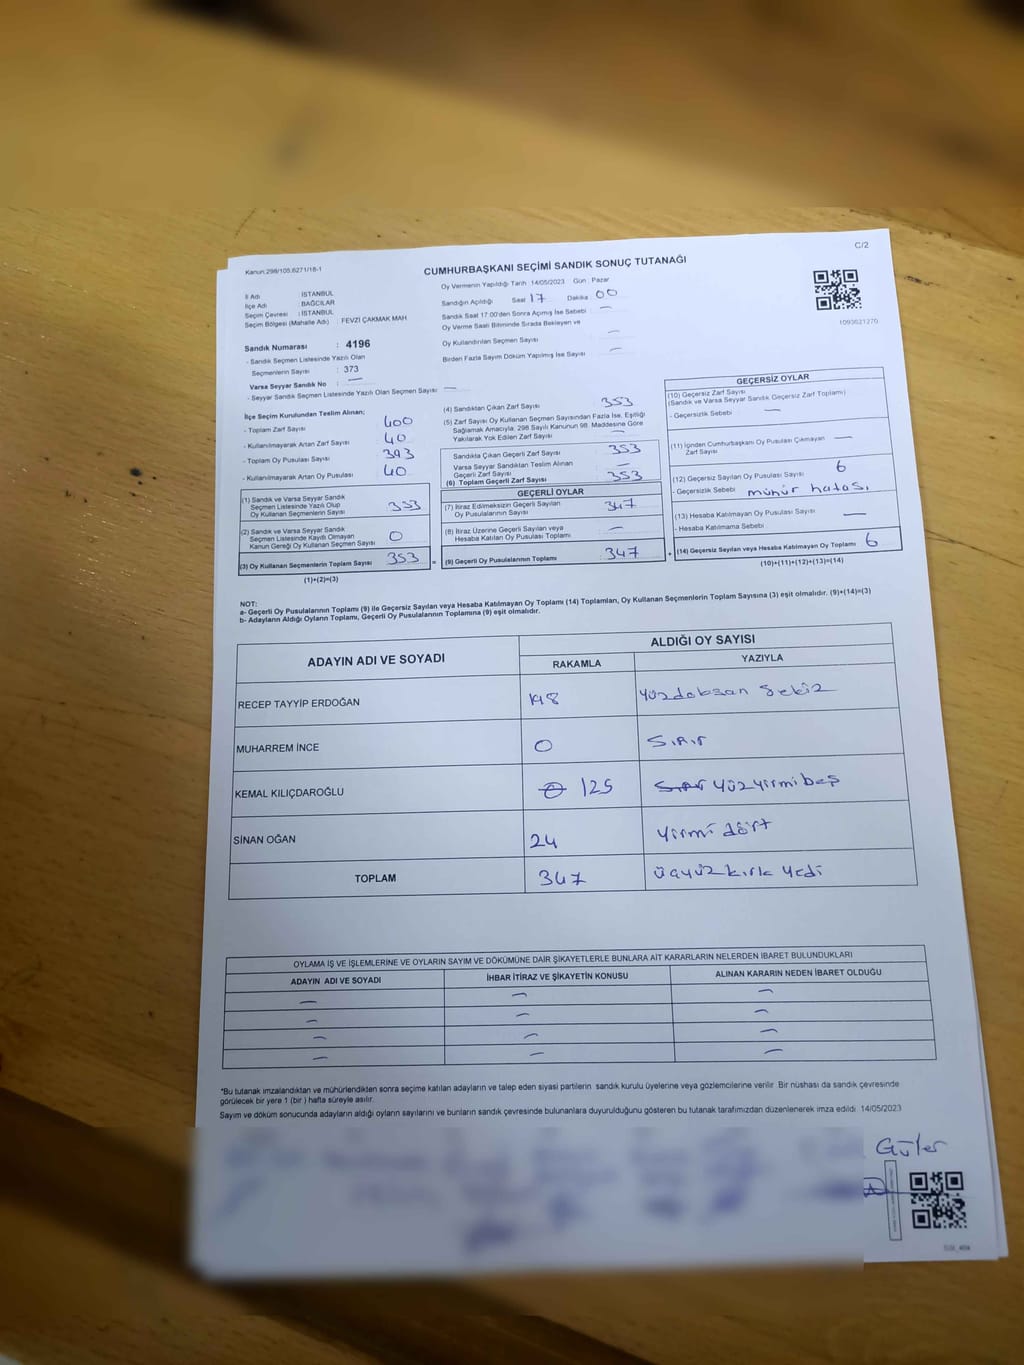 Kanun:298/105,6271/18-1
C/2
CUMHURBAŞKANI SEÇİMİ SANDIK SONUÇ TUTANAĞI
İl Adı : İSTANBUL
İlçe Adı : BAĞCILAR
Seçim Çevresi : İSTANBUL
Seçim Bölgesi (Mahalle Adı) : FEVZİ ÇAKMAK MAH
Sandık Numarası : 4196
- Sandık Seçmen Listesinde Yazılı Olan
Seçmenlerin Sayısı : 373
Varsa Seyyar Sandık No : —
- Seyyar Sandık Seçmen Listesinde Yazılı Olan Seçmen Sayısı —
Oy Vermenin Yapıldığı Tarih 14/05/2023 Gün : Pazar
Sandığın Açıldığı Saat 17 Dakika 00
Sandık Saat 17:00'den Sonra Açılmış İse Sebebi —
Oy Verme Saati Bitiminde Sırada Bekleyen ve
Oy Kullandırılan Seçmen Sayısı —
Birden Fazla Sayım Döküm Yapılmış İse Sayısı —
1093621270
İlçe Seçim Kurulundan Teslim Alınan;
- Toplam Zarf Sayısı 400
- Kullanılmayarak Artan Zarf Sayısı 40
- Toplam Oy Pusulası Sayısı 393
- Kullanılmayarak Artan Oy Pusulası 40
(1) Sandık ve Varsa Seyyar Sandık
Seçmen Listesinde Yazılı Olup
Oy Kullanan Seçmenlerin Sayısı 353
(2) Sandık ve Varsa Seyyar Sandık
Seçmen Listesinde Kayıtlı Olmayan
Kanun Gereği Oy Kullanan Seçmen Sayısı 0
(3) Oy Kullanan Seçmenlerin Toplam Sayısı 353
(1)+(2)=(3)
(4) Sandıktan Çıkan Zarf Sayısı 353
(5) Zarf Sayısı Oy Kullanan Seçmen Sayısından Fazla İse, Eşitliği
Sağlamak Amacıyla, 298 Sayılı Kanunun 98. Maddesine Göre
Yakılarak Yok Edilen Zarf Sayısı —
Sandıkta Çıkan Geçerli Zarf Sayısı 353
Varsa Seyyar Sandıktan Teslim Alınan
Geçerli Zarf Sayısı —
(6) Toplam Geçerli Zarf Sayısı 353
GEÇERLİ OYLAR
(7) İtiraz Edilmeksizin Geçerli Sayılan
Oy Pusulalarının Sayısı 347
(8) İtiraz Üzerine Geçerli Sayılan veya
Hesaba Katılan Oy Pusulası Toplamı —
= (9) Geçerli Oy Pusulalarının Toplamı 347
GEÇERSİZ OYLAR
(10) Geçersiz Zarf Sayısı
(Sandık ve Varsa Seyyar Sandık Geçersiz Zarf Toplamı)
- Geçersizlik Sebebi —
(11) İçinden Cumhurbaşkanı Oy Pusulası Çıkmayan
Zarf Sayısı —
(12) Geçersiz Sayılan Oy Pusulası Sayısı 6
- Geçersizlik Sebebi mühür hatası
(13) Hesaba Katılmayan Oy Pusulası Sayısı —
- Hesaba Katılmama Sebebi
+ (14) Geçersiz Sayılan veya Hesaba Katılmayan Oy Toplamı 6
(10)+(11)+(12)+(13)=(14)
NOT:
a- Geçerli Oy Pusulalarının Toplamı (9) ile Geçersiz Sayılan veya Hesaba Katılmayan Oy Toplamı (14) Toplamları, Oy Kullanan Seçmenlerin Toplam Sayısına (3) eşit olmalıdır. (9)+(14)=(3)
b- Adayların Aldığı Oyların Toplamı, Geçerli Oy Pusulalarının Toplamına (9) eşit olmalıdır.
ADAYIN ADI VE SOYADI
ALDIĞI OY SAYISI
RAKAMLA YAZIYLA
RECEP TAYYİP ERDOĞAN 198 yüzdoksan sekiz
MUHARREM İNCE 0 Sıfır
KEMAL KILIÇDAROĞLU 0 125 Sıfır yüzyirmibeş
SİNAN OĞAN 24 yirmi dört
TOPLAM 347 üçyüzkırk yedi
OYLAMA İŞ VE İŞLEMLERİNE VE OYLARIN SAYIM VE DÖKÜMÜNE DAİR ŞİKAYETLERLE BUNLARA AİT KARARLARIN NELERDEN İBARET BULUNDUKLARI
ADAYIN ADI VE SOYADI İHBAR İTİRAZ VE ŞİKAYETİN KONUSU ALINAN KARARIN NEDEN İBARET OLDUĞU
— — —
— — —
— — —
— — —
*Bu tutanak imzalandıktan ve mühürlendikten sonra seçime katılan adayların ve talep eden siyasi partilerin sandık kurulu üyelerine veya gözlemcilerine verilir. Bir nüshası da sandık çevresinde
görülecek bir yere 1 (bir) hafta süreyle asılır.
Sayım ve döküm sonucunda adayların aldığı oyların sayılarını ve bunların sandık çevresinde bulunanlara duyurulduğunu gösteren bu tutanak tarafımızdan düzenlenerek imza edildi. 14/05/2023
Güler